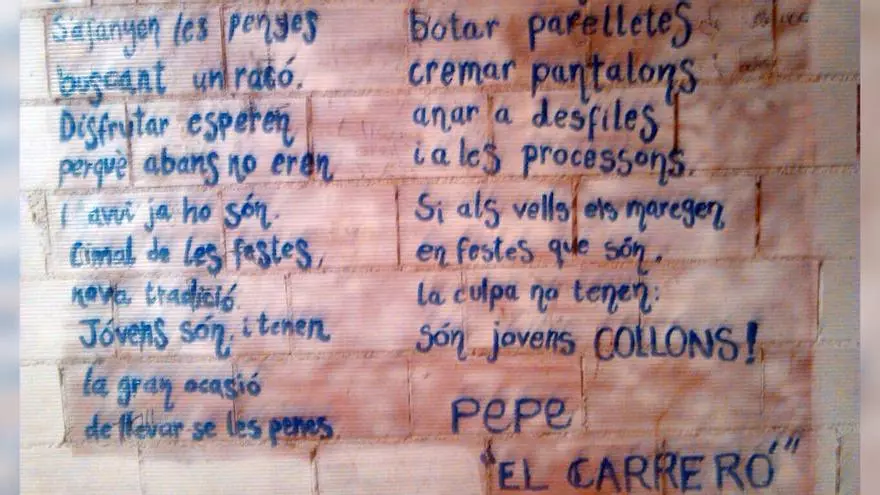 S'afanyen les penyes
buscant un racó.
Disfrutar esperen
perquè abans no eren
i avui ja ho són.
Cimal de les festes,
nova tradició.
Jóvens són, i tenen
la gran ocasió
de llevar se les penes.
botar parelletes
cremar pantalons
anar a desfiles
i a les processons.
Si als vells els maregen
en festes que són,
la culpa no tenen:
són jovens COLLONS!
PEPE
"EL CARRERÓ"